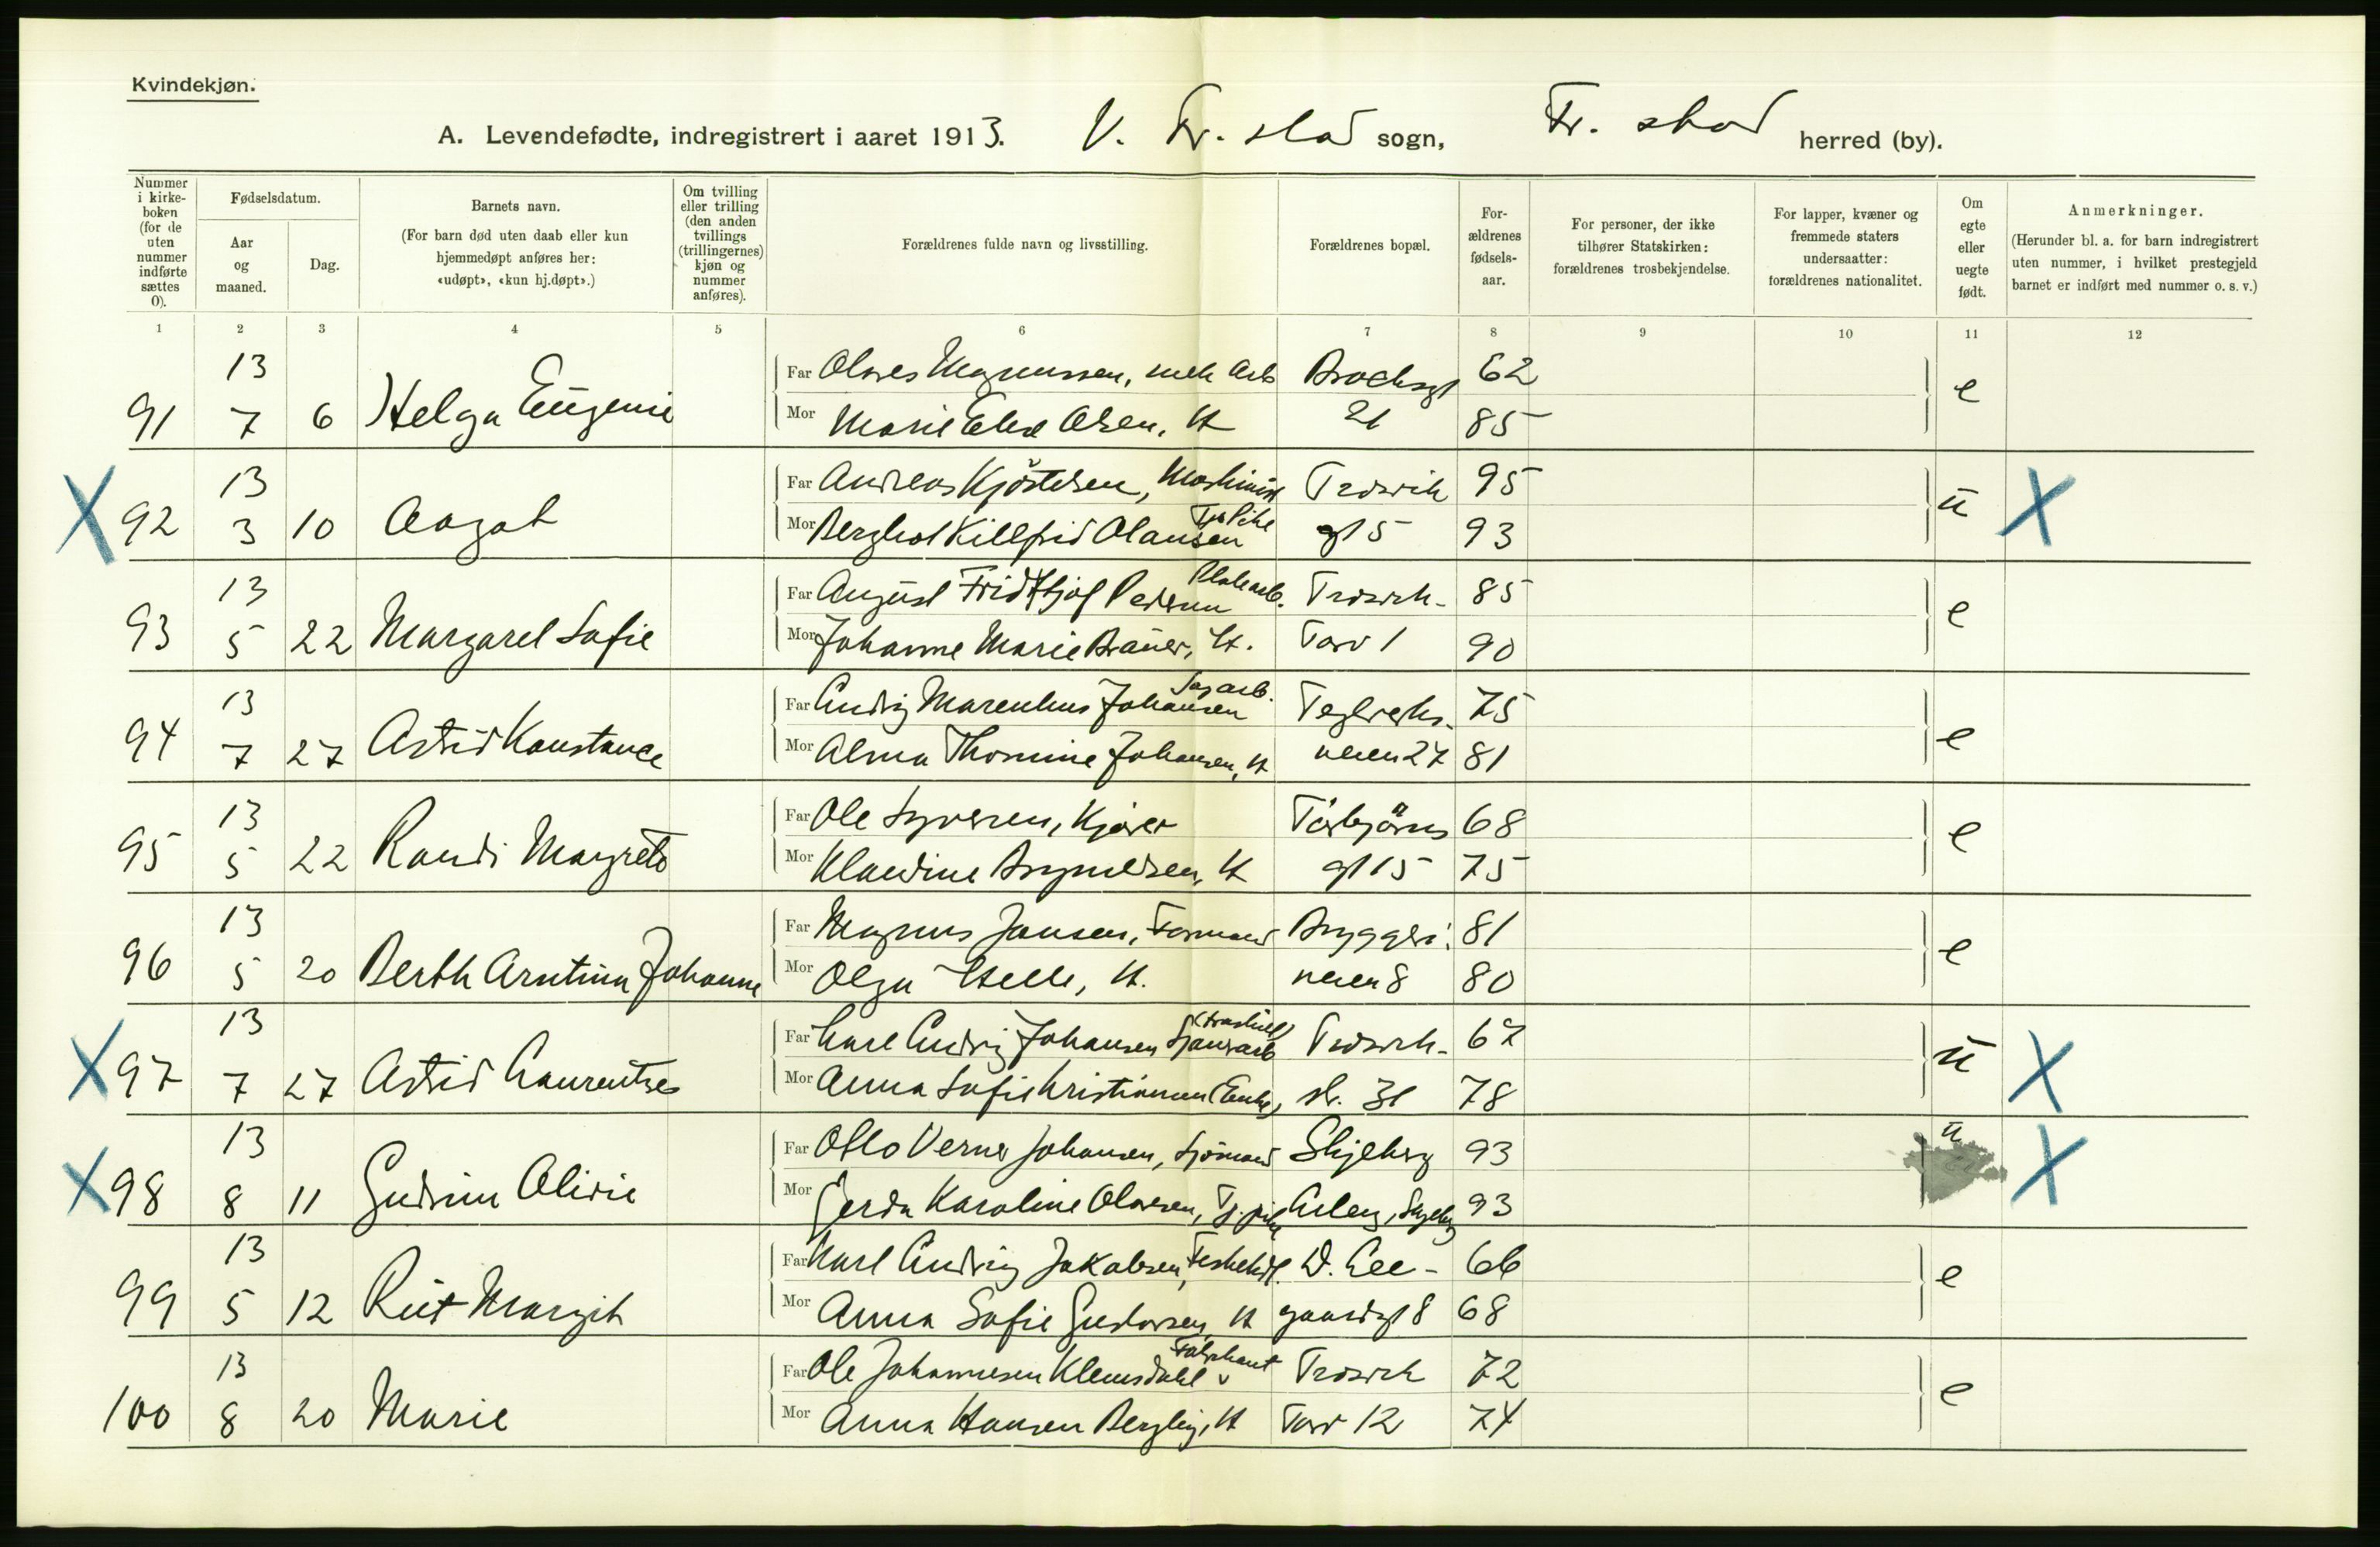 Kvindekjøn.
A. Levendefødte, indregistrert i aaret 1913. V. Fr. stad sogn, Fr. stad herred (by).
Nummer i kirkeboken (for de uten nummer indførte sættes 0).
Fødselsdatum.
Aar og maaned.
Dag.
Barnets navn.
(For barn død uten daab eller kun hjemmedøpt anføres her: «udøpt», «kun hj.døpt».)
Om tvilling eller trilling (den anden tvillings (trillingernes) kjøn og nummer anføres).
Forældrenes fulde navn og livsstilling.
Forældrenes bopæl.
Forældrenes fødselsaar.
For personer, der ikke tilhører Statskirken: forældrenes trosbekjendelse.
For lapper, kvæner og fremmede staters undersaatter: forældrenes nationalitet.
Om egte eller uegte født.
Anmerkninger.
(Herunder bl. a. for barn indregistrert uten nummer, i hvilket prestegjeld barnet er indført med nummer o. s. v.)
1 2 3 4 5 6 7 8 9 10 11 12
13 Far Olaves Magnussen, mek Arb Brochsgt 62
91 7 6 Helga Eugenie Mor Marie Olsen, H 21 85 e
X 13 Far Andreas Kjöstelsen, Maskinist Trosvik 95
92 3 10 Aagot Mor Olaussen Tj. Pike gt 5 93 u X
13 Far August Fridtjof Pedersen Platearb. Trosvik- 85
93 5 22 Margaret Sofie Mor Johanne Marie Brauer, H. Torv 1 90 e
13 Far Ludvig Marenius Johansen Sagarb. Teglverks- 75
94 7 27 Astrid Konstance Mor Alma Thomine Johansen, H veien 27 81 e
13 Far Ole Syversen, Kjører Torbjörns 68
95 5 22 Randi Margrete Mor Klaudine Brynildsen, H gt 15 75 e
13 Far Magnus Jansen, Formand Bryggeri- 81
96 5 20 Berth Arntina Johanne Mor Olga Helle, H. veien 8 80 e
X 13 Far Karl Ludvig Johansen (fraskilt) Trosvik- 67
97 7 27 Astrid Laurentze Mor Anna Sofie Kristiansen (Enke) st. 31 78 u X
X 13 Far Otto Verner Johansen, Sjömand Skjeberg 93 u
98 8 11 Gudrun Olivie Mor Gerda Karoline Olavesen, Tj. pike 93 X
13 Far Karl Ludvig Jakobsen, Fiskehdl. D. Lee- 66
99 5 12 Rut Margit Mor Anna Sofie H gaardsgt 8 68 e
13 Far Ole Johannesen Klemsdahl Fabrikant Trosvik 72
100 8 20 Marie Mor Anna Hansen Bergby, H Torv 12 74 e